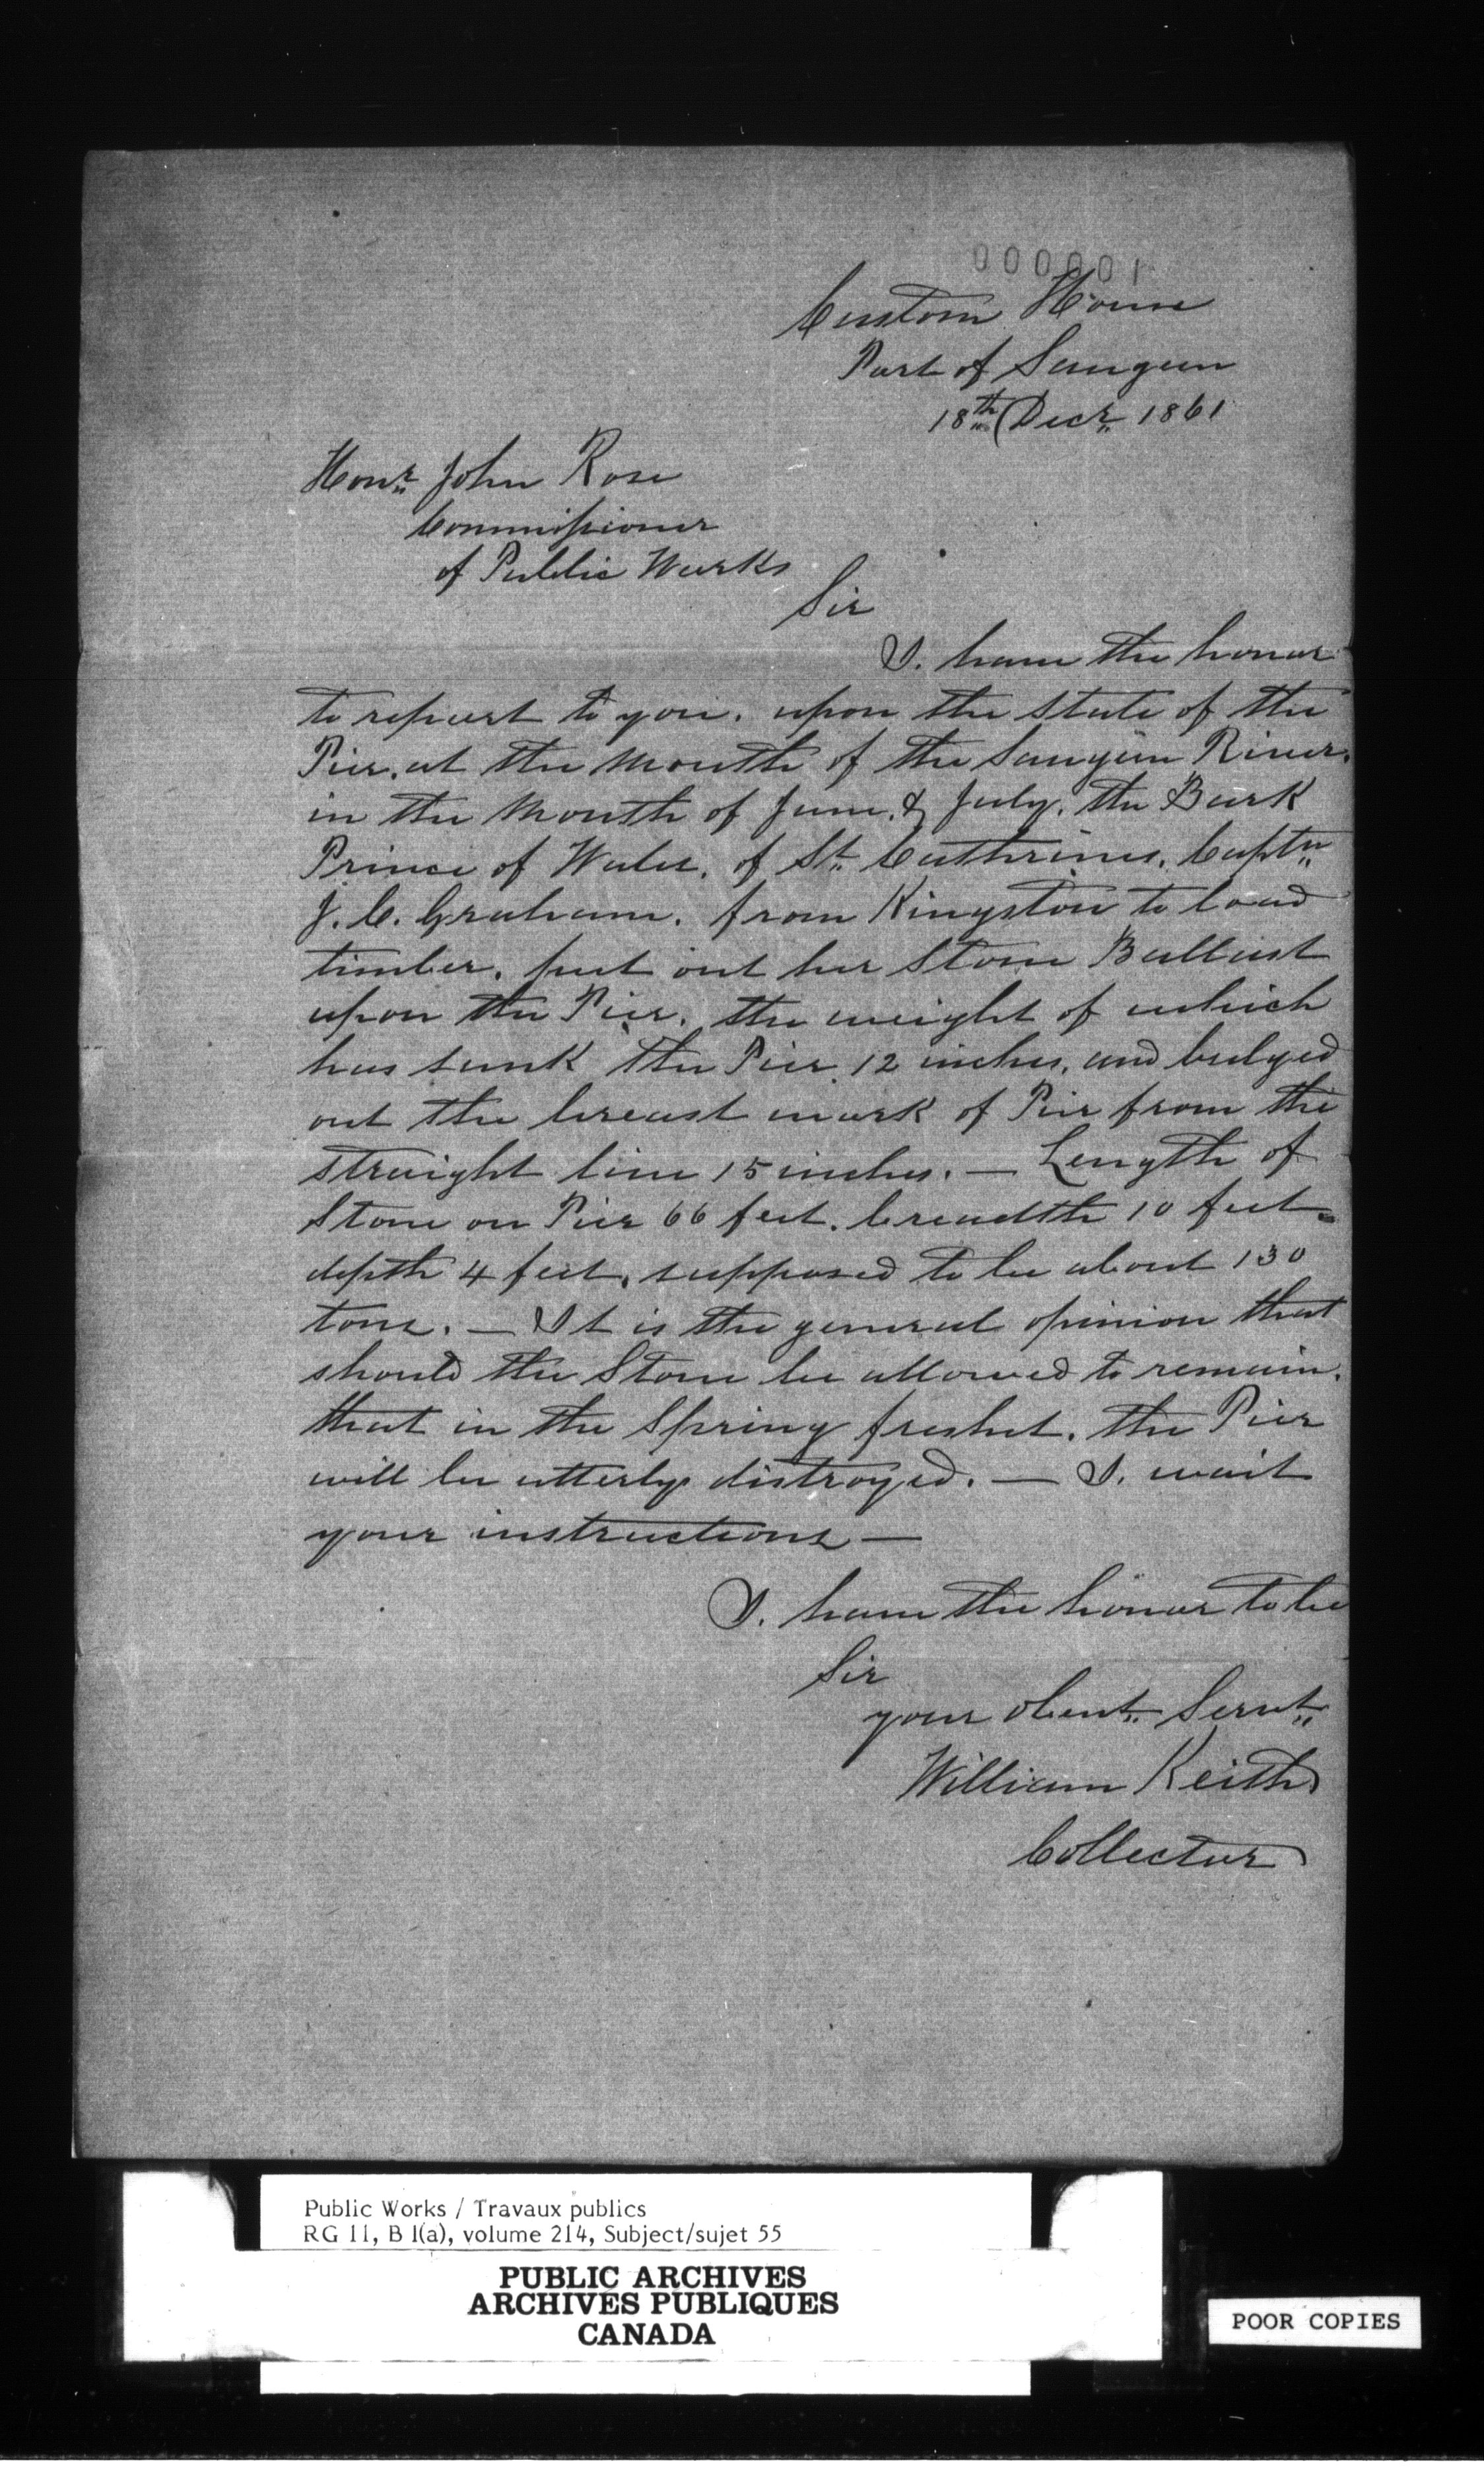 000001
Custom House
Port of Saugeen
18th Decr 1861
Honr John Rose
Commissioner
of Public Works
Sir
I. have the honor
to report to you. upon the state of the
Pier. at the mouth of the Saugeen River.
in the Month of June. & July. the Bark
Prince of Wales. of St. Cathrines. Captn
J. C. Graham. from Kingston to load
timber. put out her Stone Ballast
upon the Pier. the weight of which
has sunk the Pier 12 inches. and bulged
out the breast work of Pier from the
straight line 15 inches. — Length of
Stone on Pier 66 feet. breadth 10 feet
depth 4 feet. supposed to be about 130
tons. — It is the general opinion that
should the Stone be allowed to remain.
that in the Spring freshet. the Pier
will be utterly distroyed. — I. wait
your instructions —
I. have the honor to be
Sir
your obent Servt
William Keith
Collector
Public Works / Travaux publics
RG 11, B 1(a), volume 214, Subject/sujet 55
PUBLIC ARCHIVES
ARCHIVES PUBLIQUES
CANADA
POOR COPIES